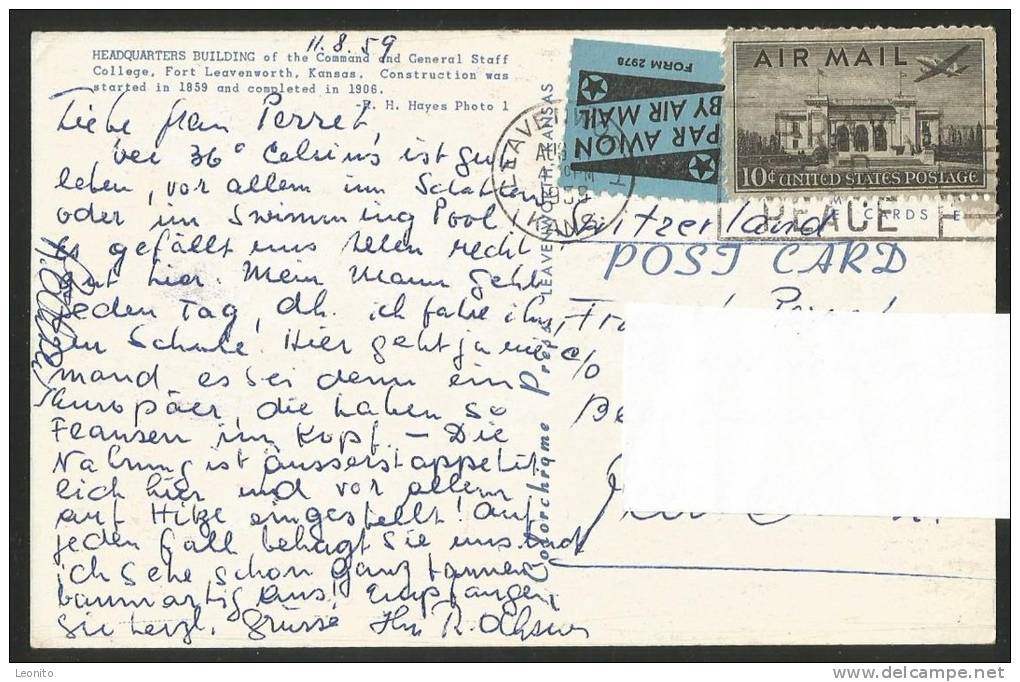 11.8.59
HEADQUARTERS BUILDING of the Command and General Staff
College, Fort Leavenworth, Kansas. Construction was
started in 1859 and completed in 1906.
-R. H. Hayes Photo 1
Liebe Frau Perret,
bei 36° Celsius ist gut
leben, vor allem im Schatten
oder im Swimming Pool
Es gefällt uns allen recht
gut hier. Mein Mann geht
jeden Tag, dh. ich fahre ihn,
zur Schule! Hier geht ja nie
mand, es sei denn ein
Europäer, die haben so
Fransen im Kopf. – Die
Nahrung ist äusserst appetit
lich hier und vor allem
auf Hitze eingestellt! Auf
jeden Fall behagt sie uns und
ich sehe schon ganz tannen
baumartig aus! Empfangen
Sie herzl. Grüsse Ihr R. Ochsner
Colorchrome Press, LEAVENWORTH, KANSAS
FORM 2978
BY AIR MAIL
PAR AVION
LEAVENWORTH
AUG
1959
KANS.
AIR MAIL
10¢ UNITED STATES POSTAGE
PEACE
Switzerland
POST CARD
c/o
Leonito
www.delcampe.net